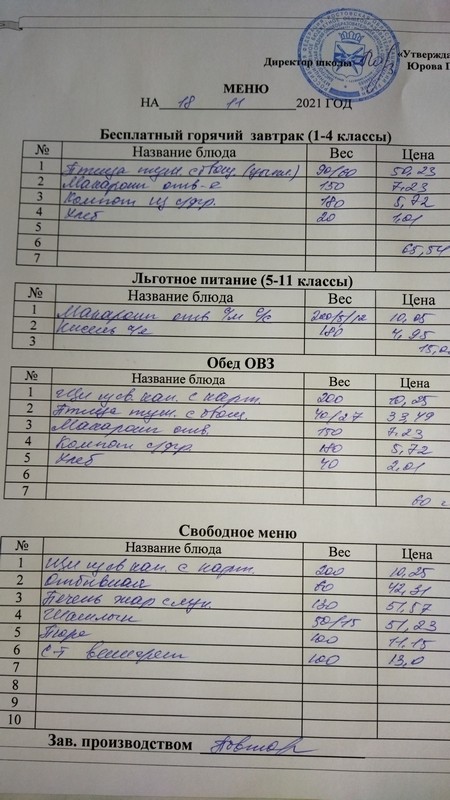 «Утвержда
Директор школы: Юрова Г
МЕНЮ
НА 18 11 2021 ГОД
Бесплатный горячий завтрак (1-4 классы)
№ Название блюда Вес Цена
1 Птица туш с овощ 90/60 50,23
2 Макароны отв-е 150 7.23
3 Компот из с/фр. 180 5,72
4 Хлеб 20 1,01
5
6 65,54
7
Льготное питание (5-11 классы)
№ Название блюда Вес Цена
1 Макароны отв 10,05
2 Кисель 180 4,95
3 15,0
Обед ОВЗ
№ Название блюда Вес Цена
1 Щи из св кап. с карт. 200 10,25
2 Птица туш. с овощ. 40/27 33,49
3 Макароны отв. 150 7.23
4 Компот с/фр. 180 5,72
5 Хлеб 40 2,01
6
7 60
Свободное меню
№ Название блюда Вес Цена
1 Щи из св кап. с карт. 200 10,25
2 Отбивная 60 42,31
3 Печень жар 51,57
4 Шашлык 50/75 51,23
5 Пюре 100 11.15
6 С-т венигрет 100 13,0
7
8
9
10
Зав. производством